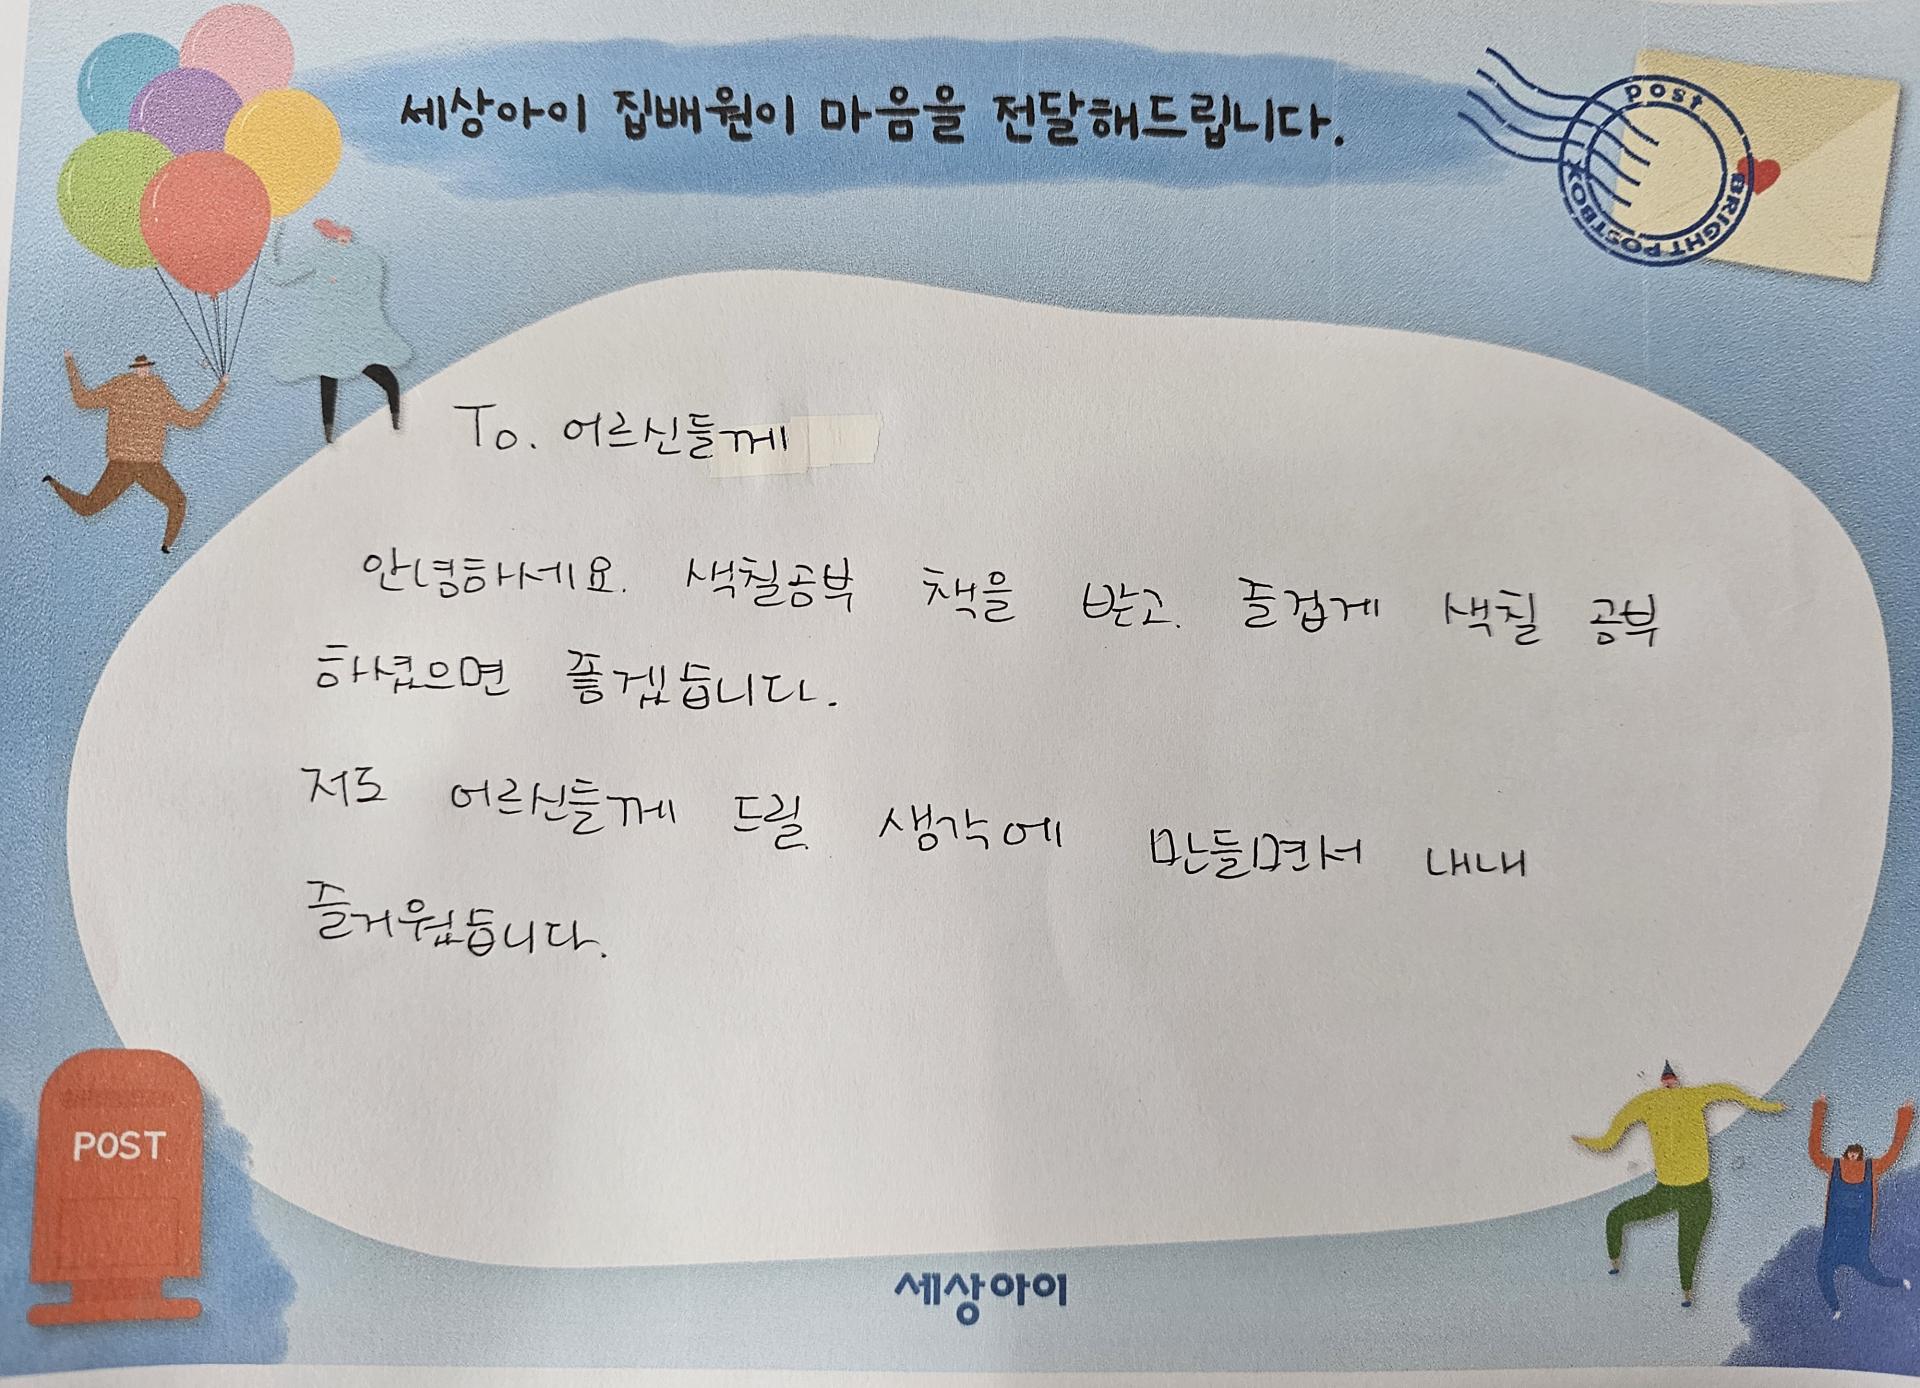 세상아이 집배원이 마음을 전달해드립니다.
post
BRIGHT POSTBOX
To. 어르신들께
안녕하세요. 색칠공부 책을 받고. 즐겁게 색칠 공부
하셨으면 좋겠습니다.
저도 어르신들께 드릴 생각에 만들면서 내내
즐거웠습니다.
POST
세상아이